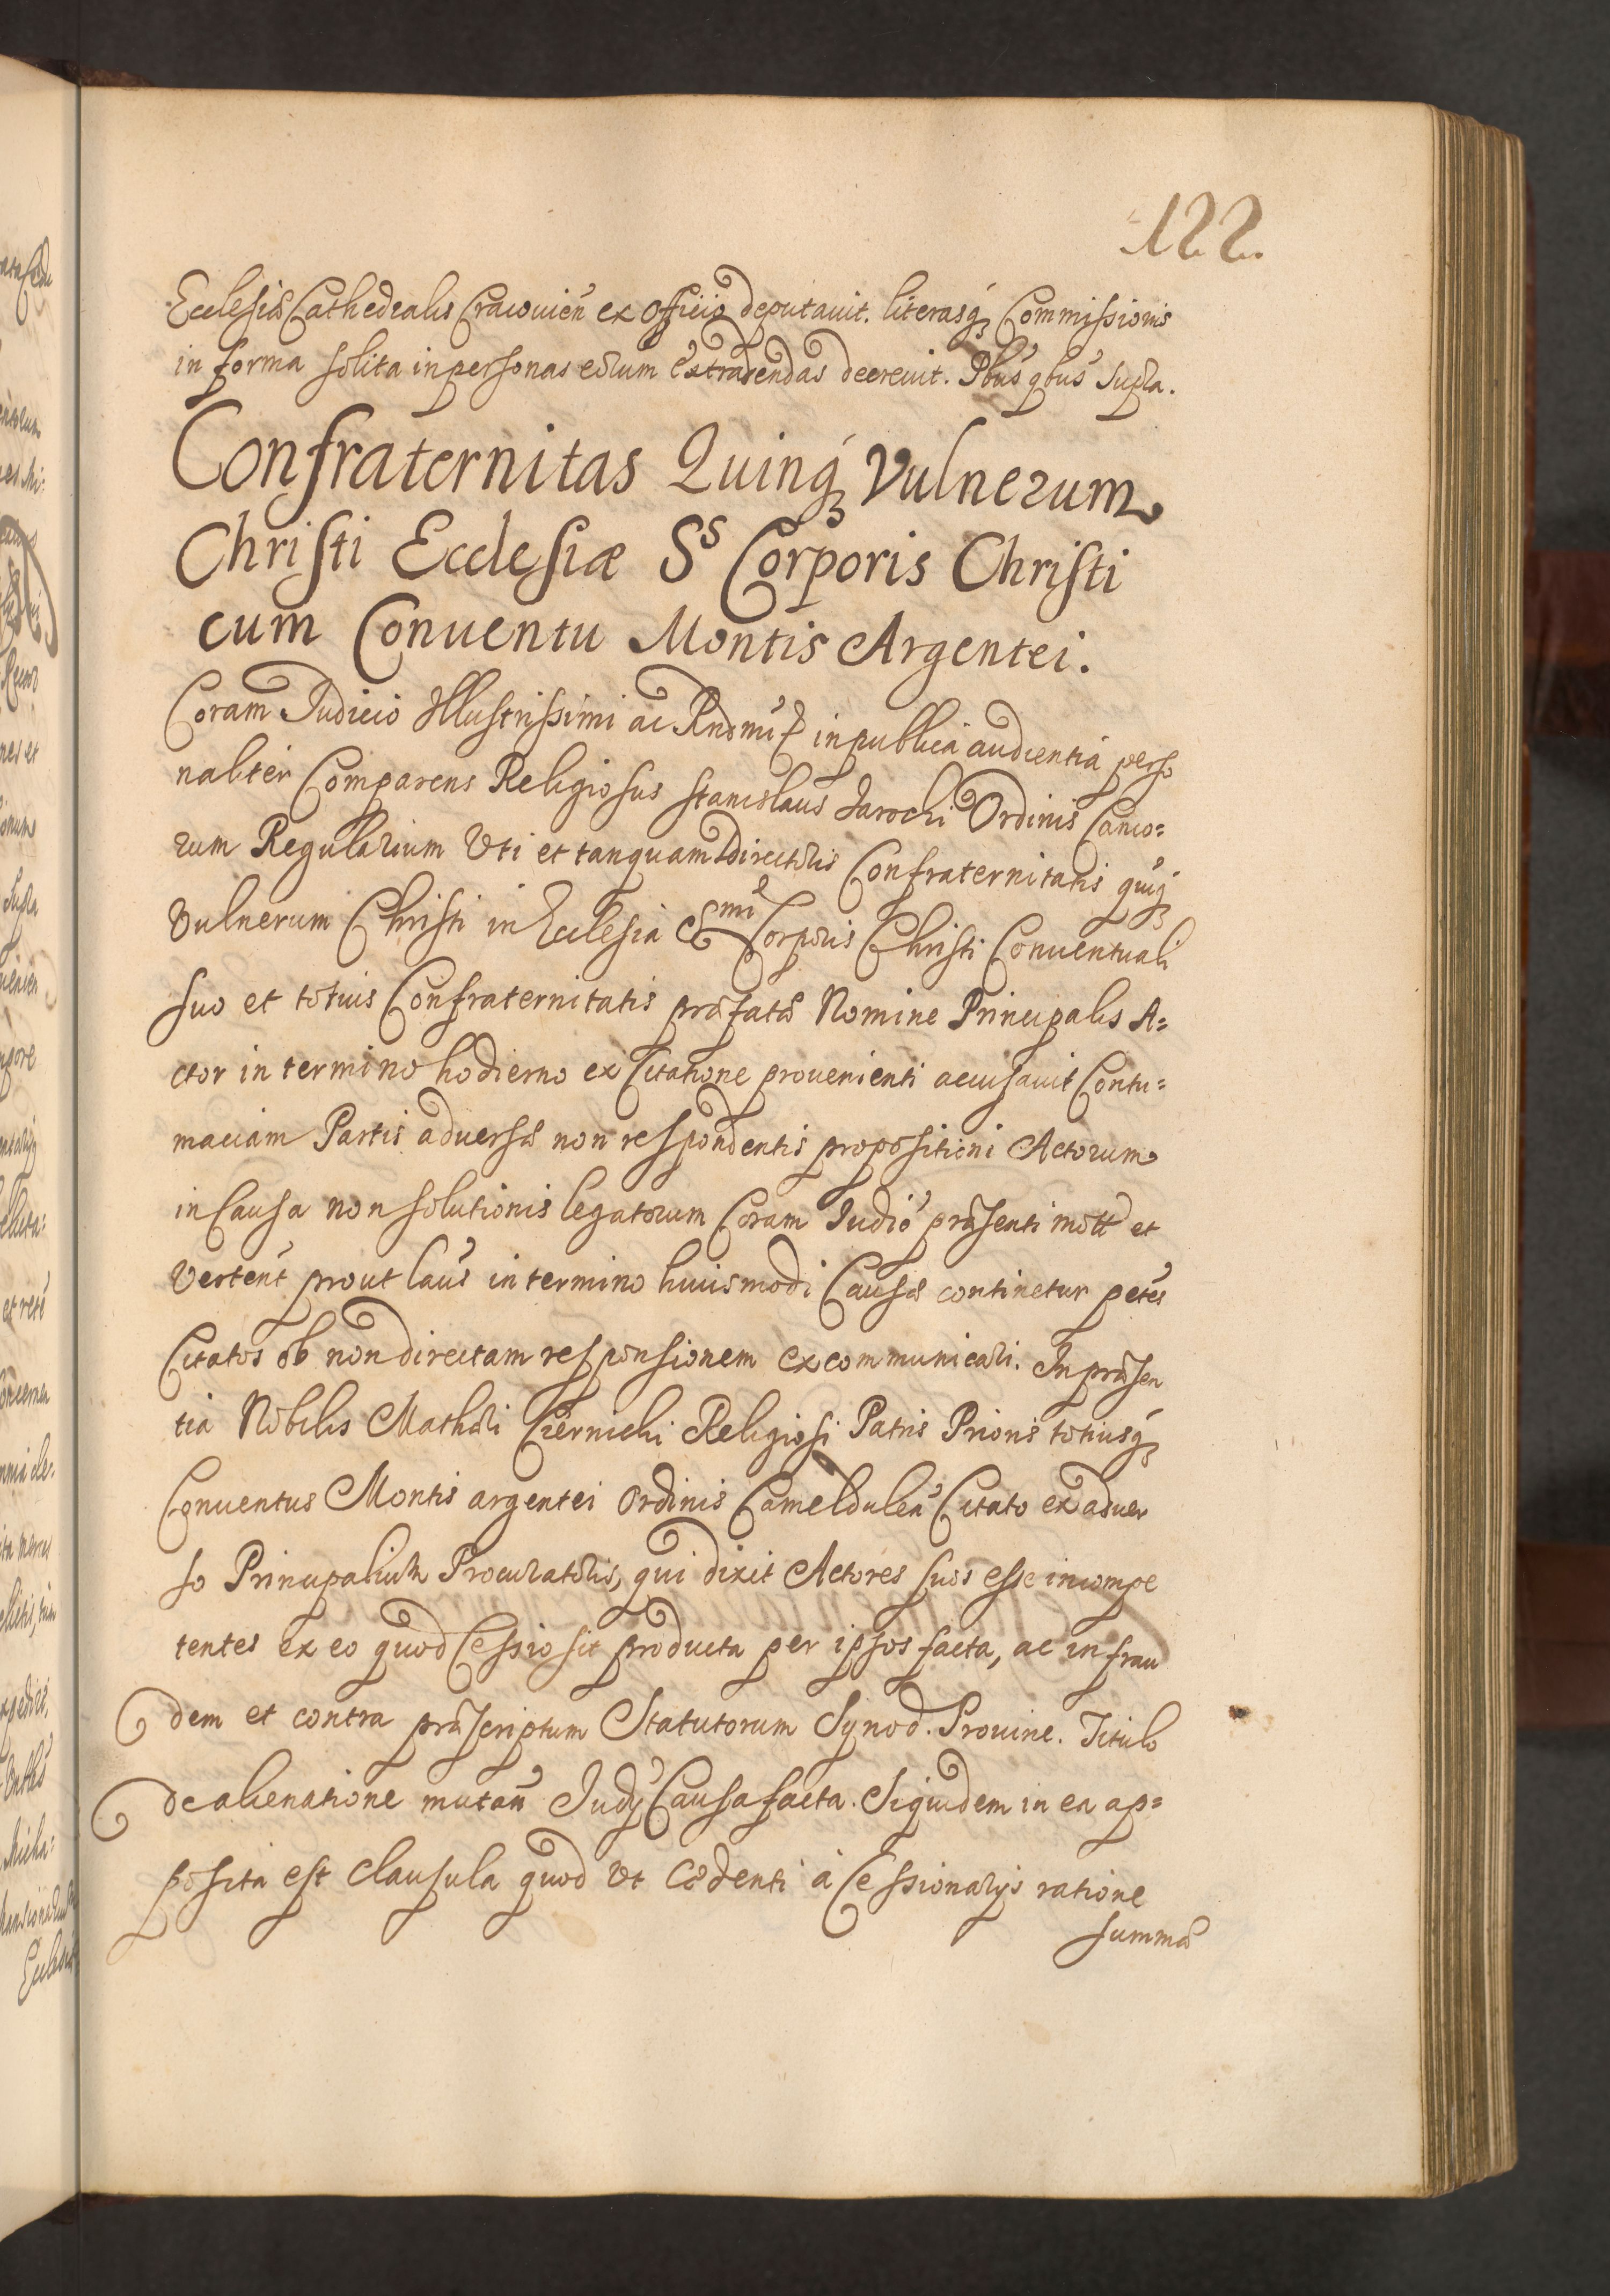 122.
Ecclesiæ Cathedralis Cracouień ex Officio deputauit. literasq́ Commissionis
in forma solita in personas eorum extradendas decreuit. Pbus qbus supra.
Confraternitas Quinq́ Vulnerum
Christi Ecclesiæ Sˢ Corporis Christi
cum Conuentu Montis Argentei.
Coram Judicio Illustrissimi ac Rndmi in publica audientia perso
naliter Comparens Religiosus Stanislaus Jarocki Ordinis Cano=
rum Regularium Vti et tanquam directoris Confraternitatis quinq́
Vulnerum Christi in Ecclesia Sᵐⁱ Corporis Christi Conuentuali
suo et totius Confraternitatis præfatæ Nomine Principalis A=
ctor in termino hodierno ex Citatione prouenienti accusauit Contu=
maciam Partis aduersæ non respondentis propositioni Actorum
in Causa non solutionis legatorum Coram Judió præsenti mott et
Vertent́ prout laús in termino huiusmodi Causæ continetur petés
Citatos ob non directam responsionem excommunicari. In præsen
tia Nobilis Mathæi Ciernicki Religiosi Patris Prioris totiusq́
Conuentus Montis argentei Ordinis Cameldulen̄ Citato ex aduer
so Principalium Procuratoris, qui dixit Actores suos esse incompe
tentes ex eo quod Cessio sit producta per ipsos facta, ac in frau
dem et contra præscriptum Statutorum Synod. Prouinc. Titulo
de alienatione mutan̄ Judÿ Causa facta. Siquidem in ea ap=
posita est clausula quod Vt Cedenti à Cessionarÿs ratione
summæ